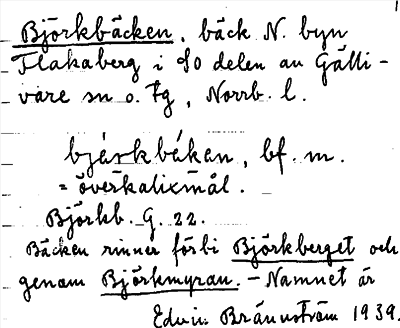 Björkbäcken, bäck N. byn
Flakaberg i SO delen av Gälli-
vare sn o. tg, Norrb. l.
bjärkbäken, bf. m.
= överkalixmål.
Björkb. G. 22.
Bäcken rinner förbi Björkberget och
genom Björkmyran. - Namnet är
Edvin Brännström 1939.